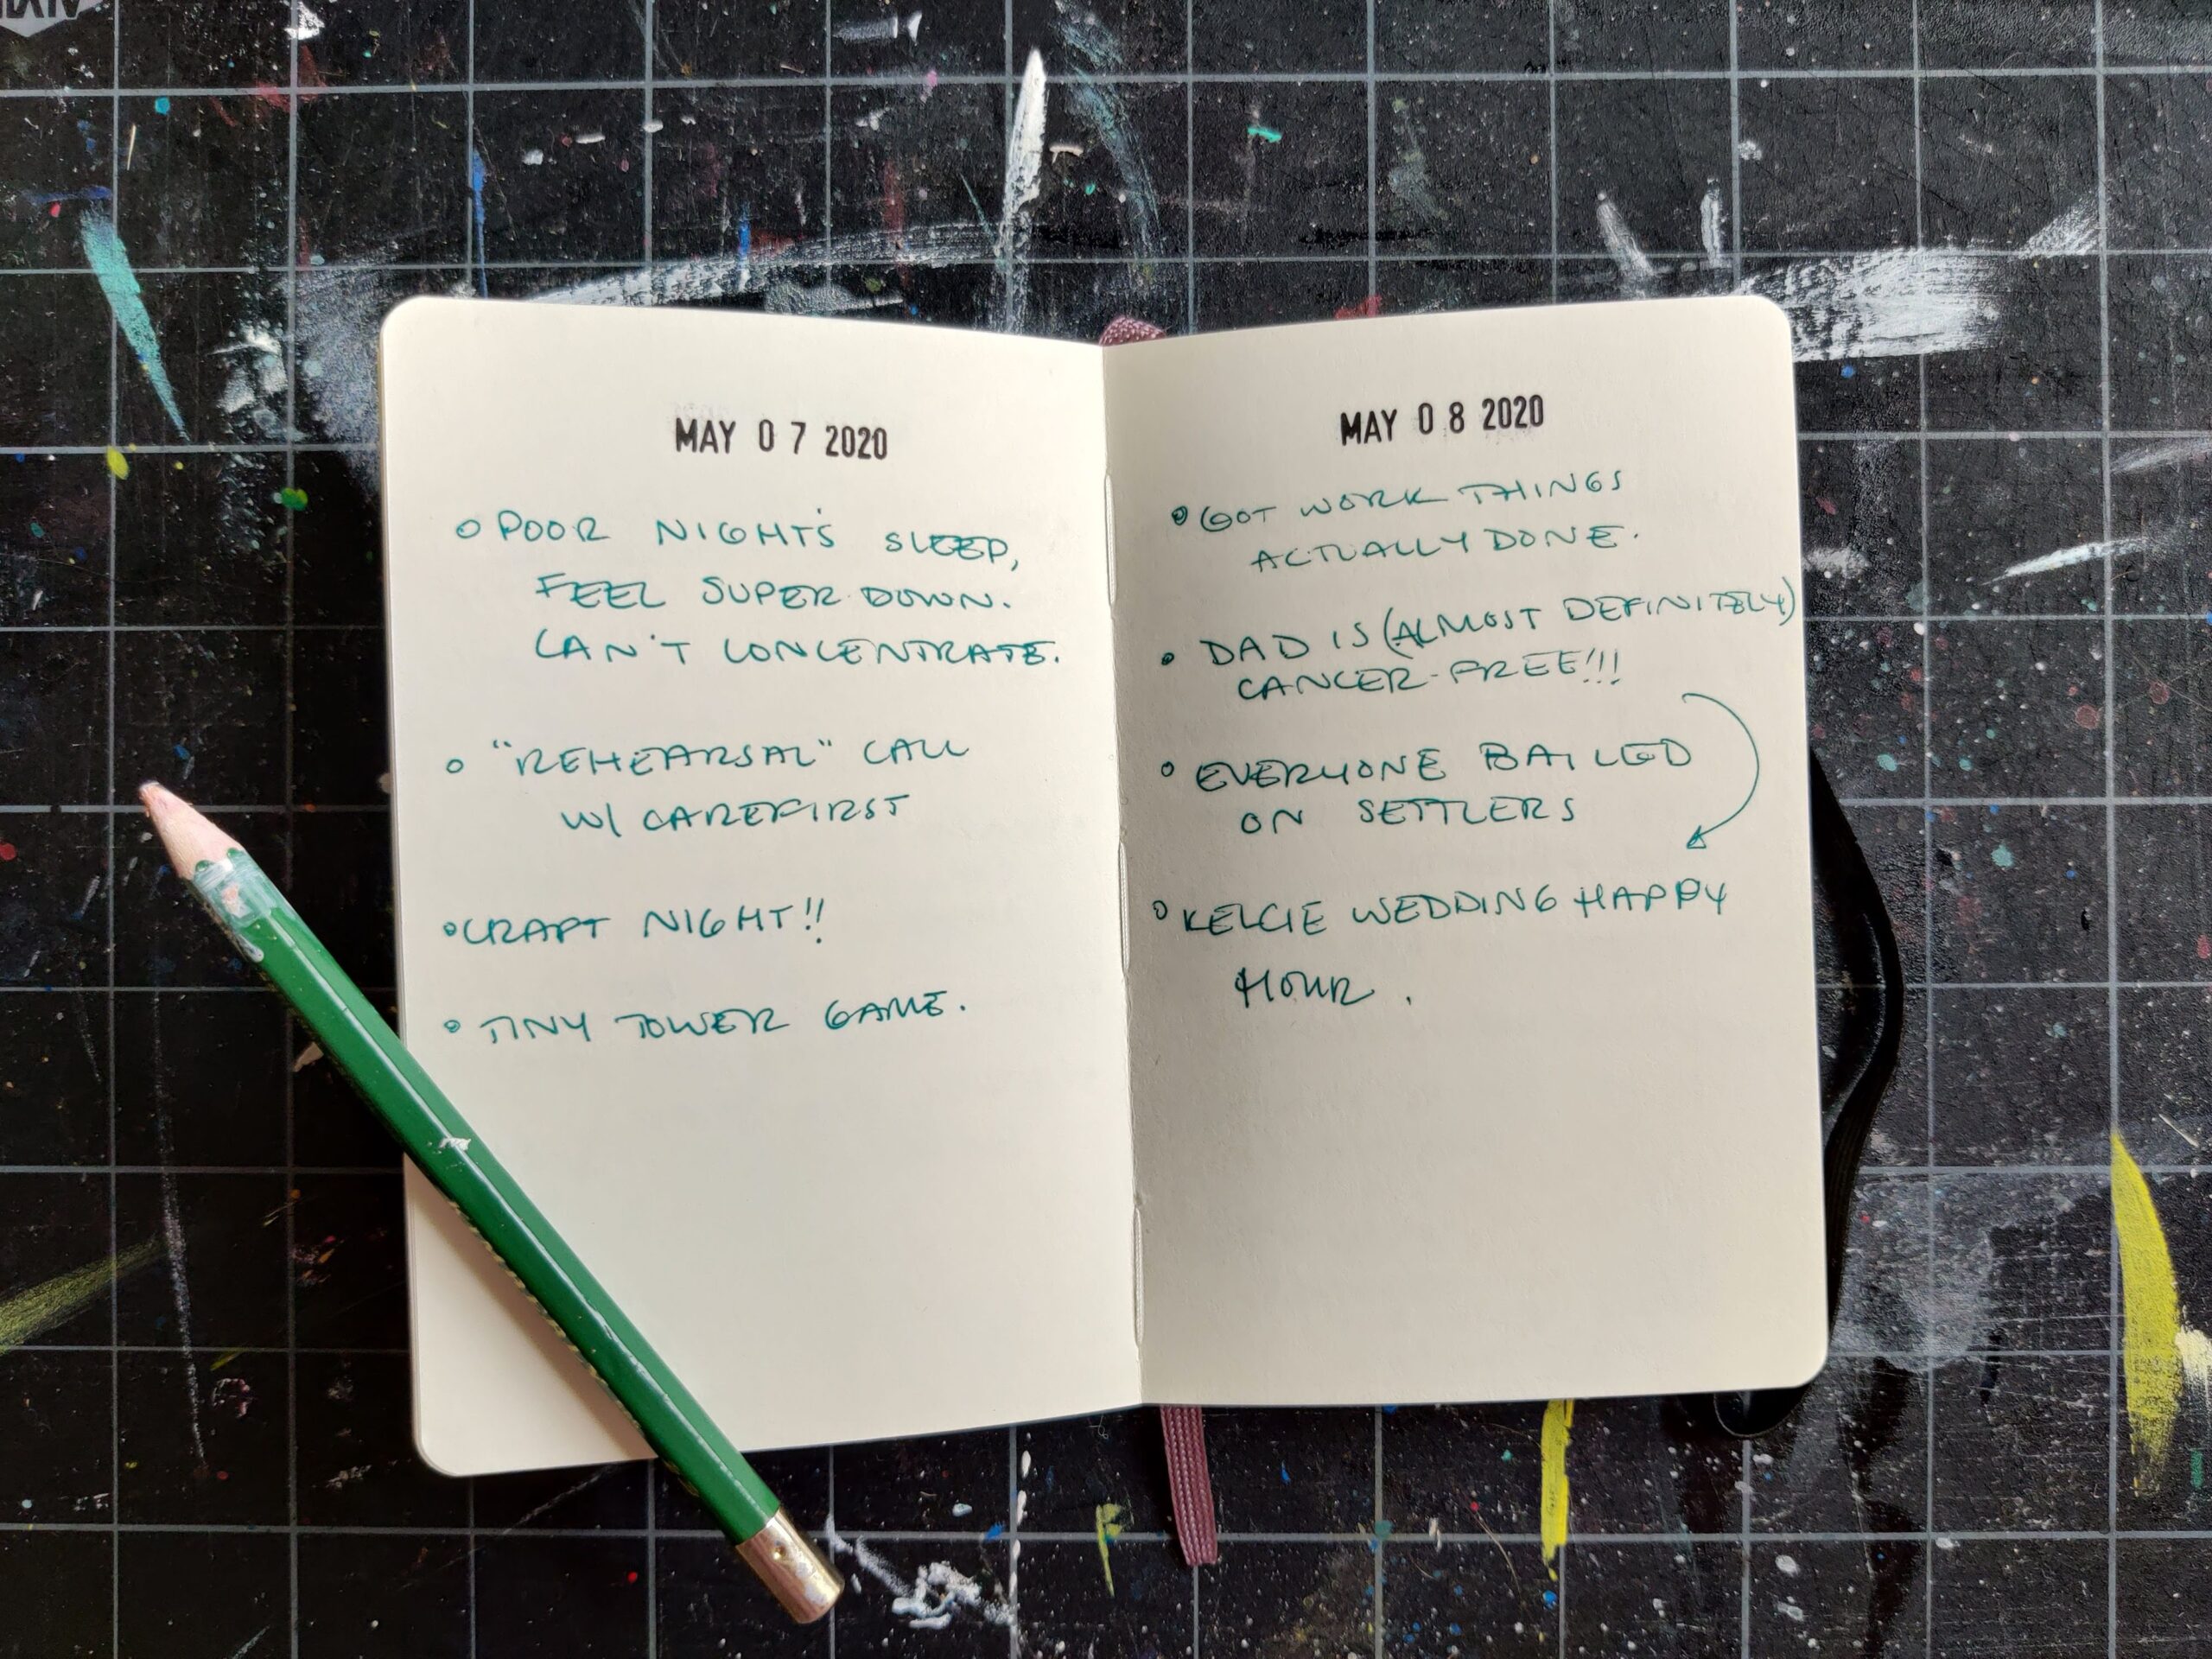 MAY 07 2020
POOR NIGHT'S SLEEP,
FEEL SUPER DOWN.
CAN'T CONCENTRATE.
"REHEARSAL" CALL
W/ CAREFIRST
CRAFT NIGHT!!
TINY TOWER GAME.
MAY 08 2020
GOT WORK THINGS
ACTUALLY DONE.
DAD IS (ALMOST DEFINITELY)
CANCER-FREE!!!
EVERYONE BAILED
ON SETTLERS
KELCIE WEDDING HAPPY
HOUR.